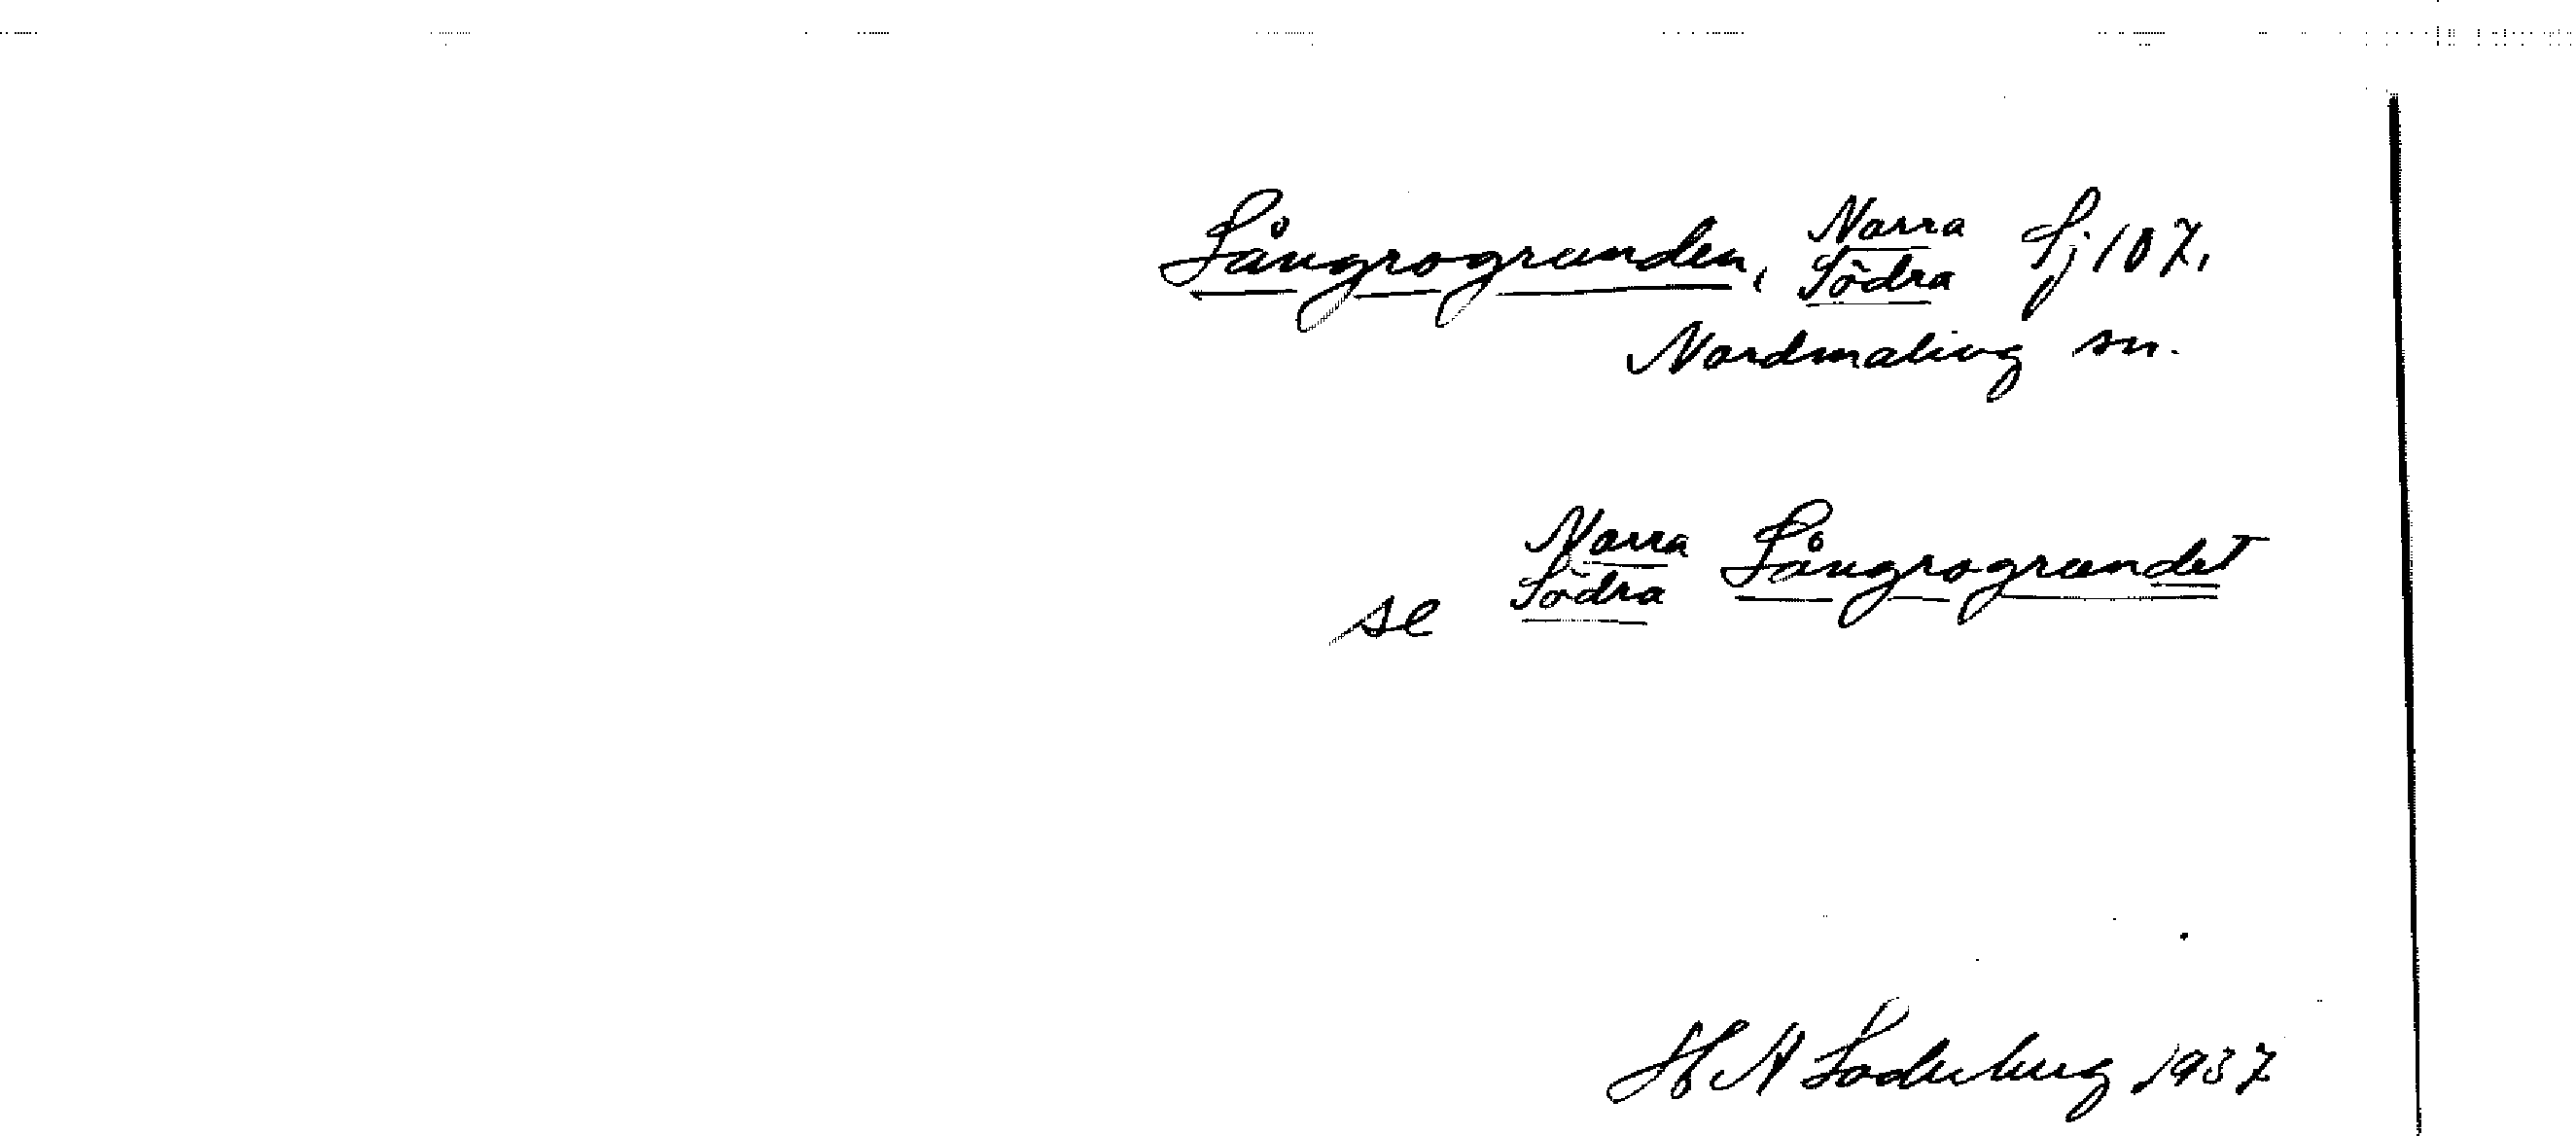 Långrogrunden, Norra
Södra Sj 107.
Nordmaling sn.
se Norra
Södra Långrogrundet
H A Söderberg 1937